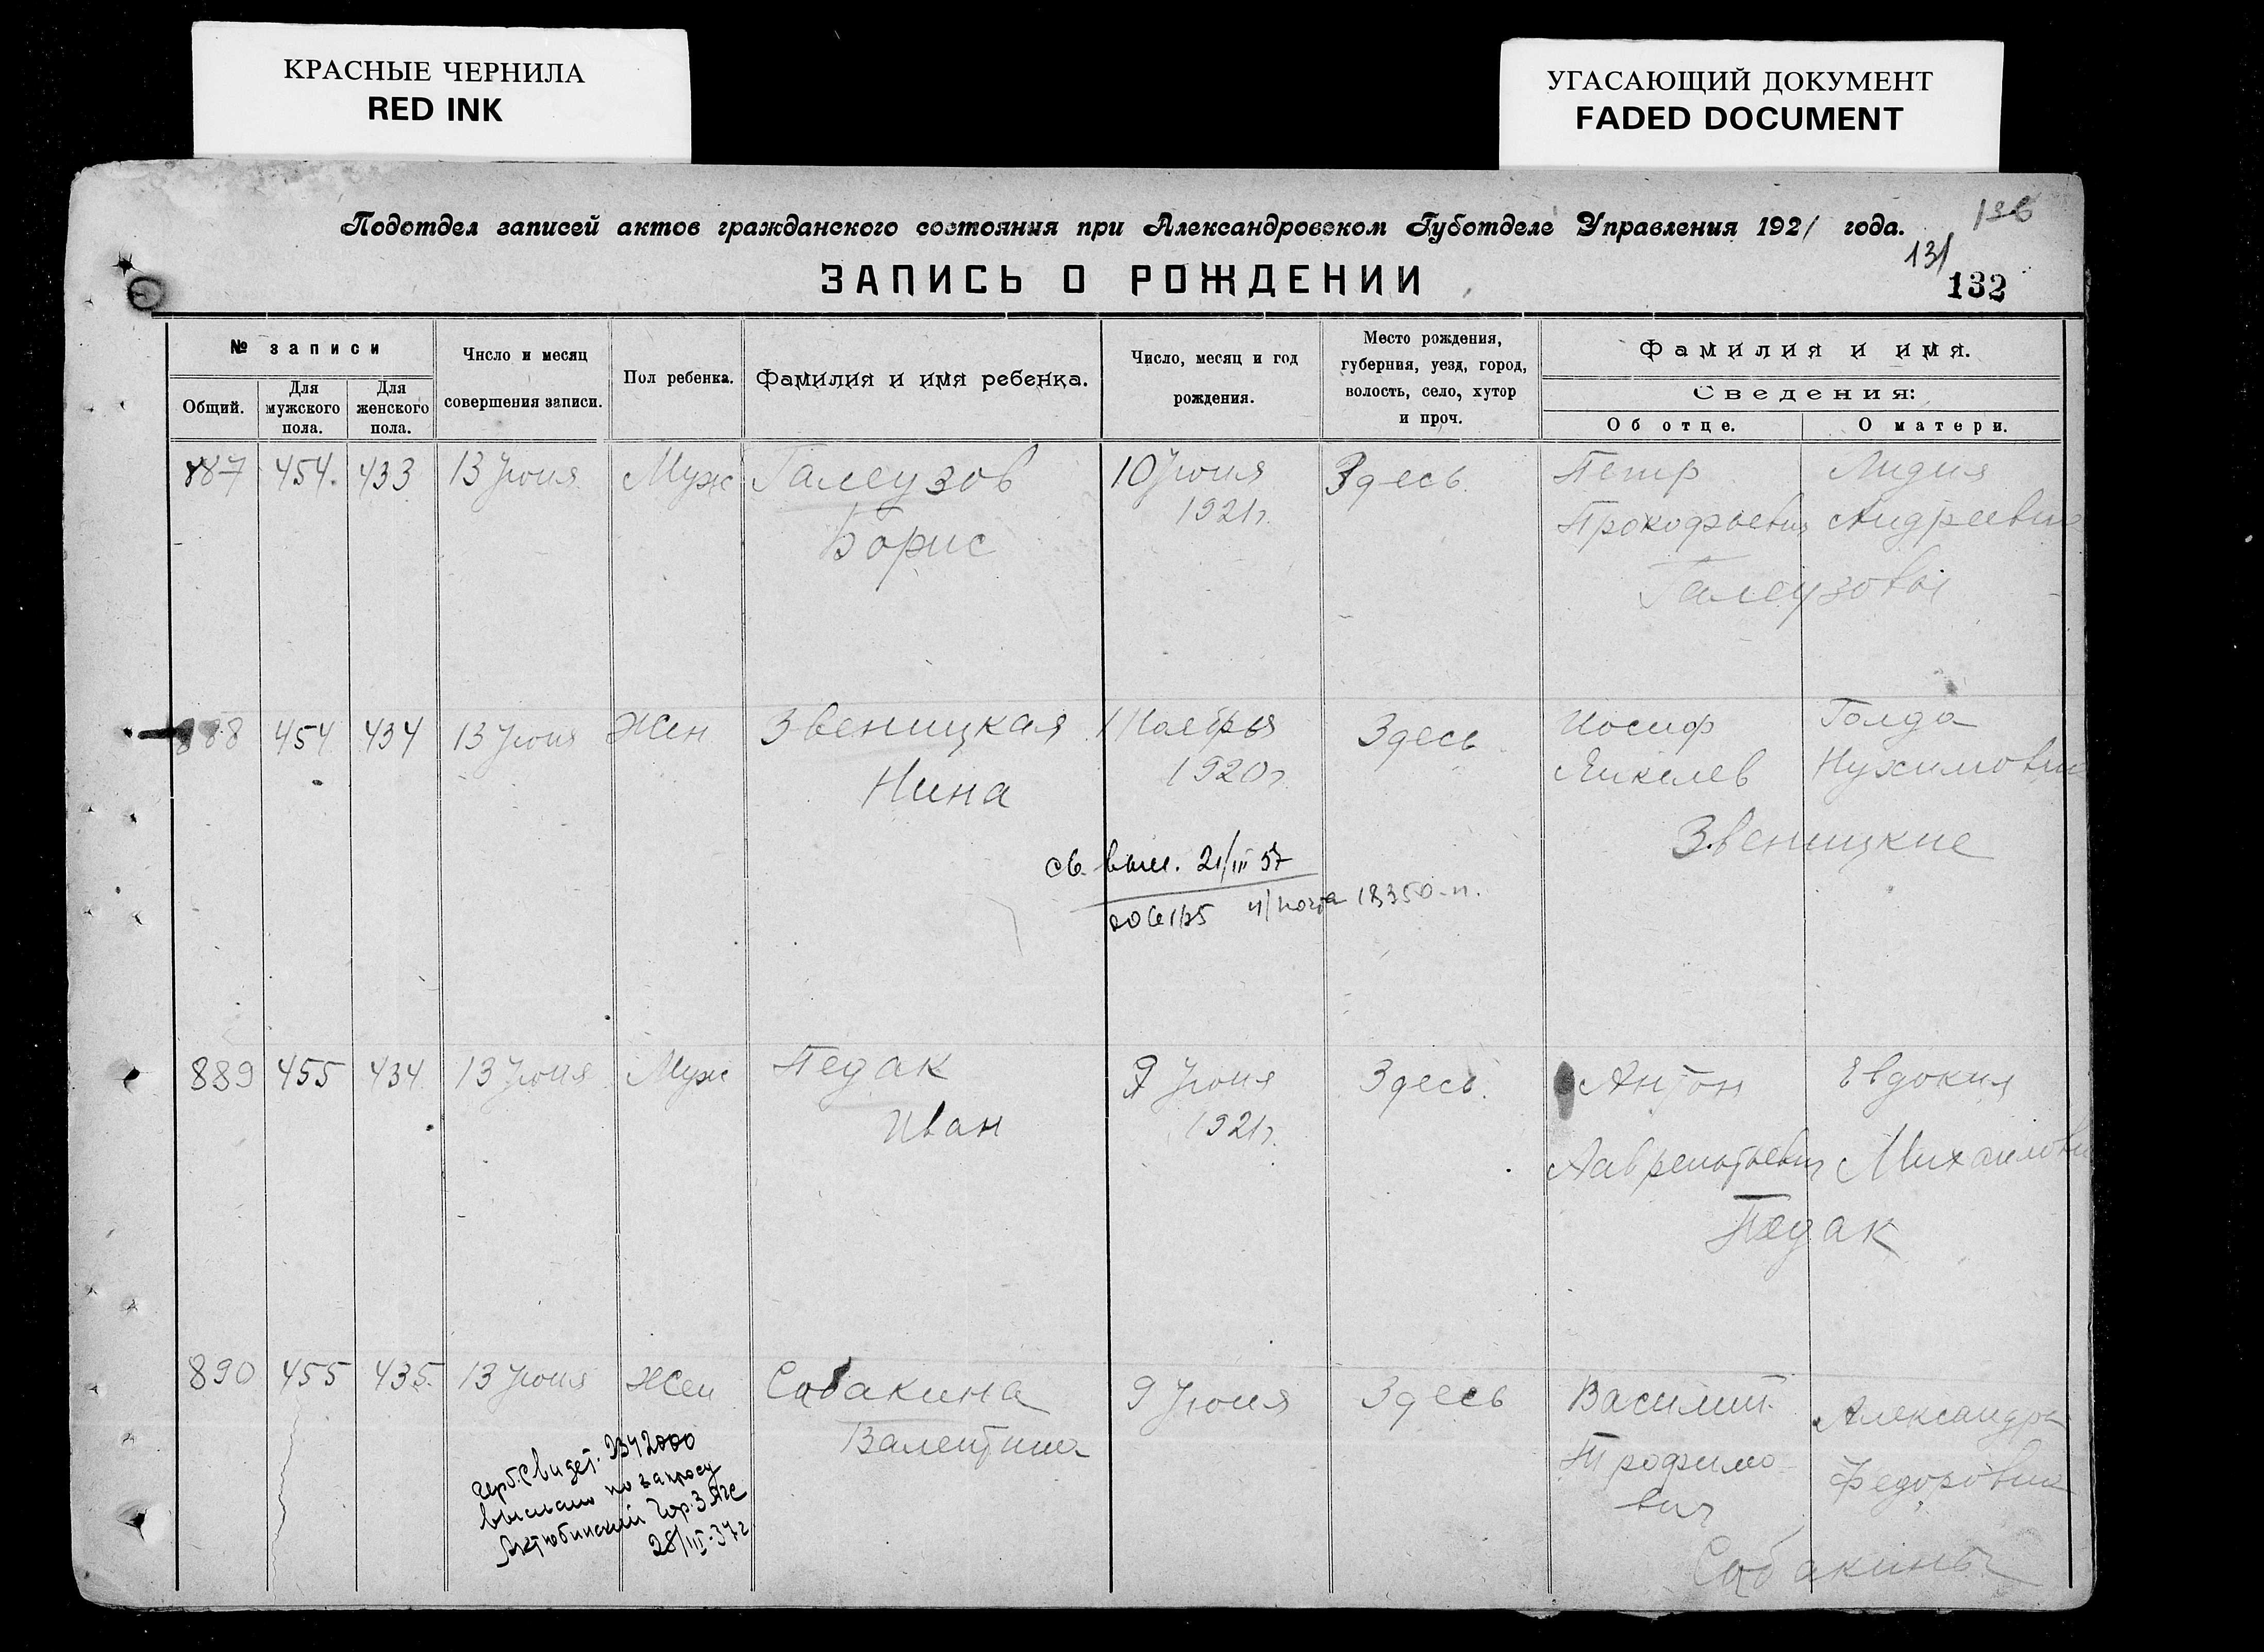 КРАСНЫЕ ЧЕРНИЛА
RED INK
УГАСАЮЩИЙ ДОКУМЕНТ
FADED DOCUMENT
Подотдел записей актов гражданского состояния при Александровском Губотделе Управления 1921 года.
131
ЗАПИСЬ О РОЖДЕНИИ
132
№ записи
Общий.
Для мужского пола.
Для женского пола.
Число и месяц совершения записи.
Пол ребенка.
Фамилия и имя ребенка.
Число, месяц и год рождения.
Место рождения, губерния, уезд, город, волость, село, хутор и проч.
Фамилия и имя.
Сведения:
Об отце.
О матери.
887 454. 433 13 Июня Муж Галеузов 10 Июня Здесь. Петр Лидия
1921г. Прокофьевич Андреевна
Борис
Галеузовы
888 454 434 13 Июня Жен Звеницкая 1 Ноября Здесь Иосиф Голда
Нина 1920г. Янкелев Нухимовна
Звеницкие
св. выс. 21/III 57
18350-н.
889 455 434 13 Июня Муж Педак 9 Июня Здесь. Антон Евдокия
Иван 1921г.
Лаврентьевич Михайловна
Педак
890 455 435. 13 Июня Жен Собакина 9 Июня Здесь Василий Александра
Валентина Трофимо Федоровна
вич
Собакины
герб. свидет. 2342000
выслано по запросу
Актюбинский Гор. ЗАГС
28/III-37г